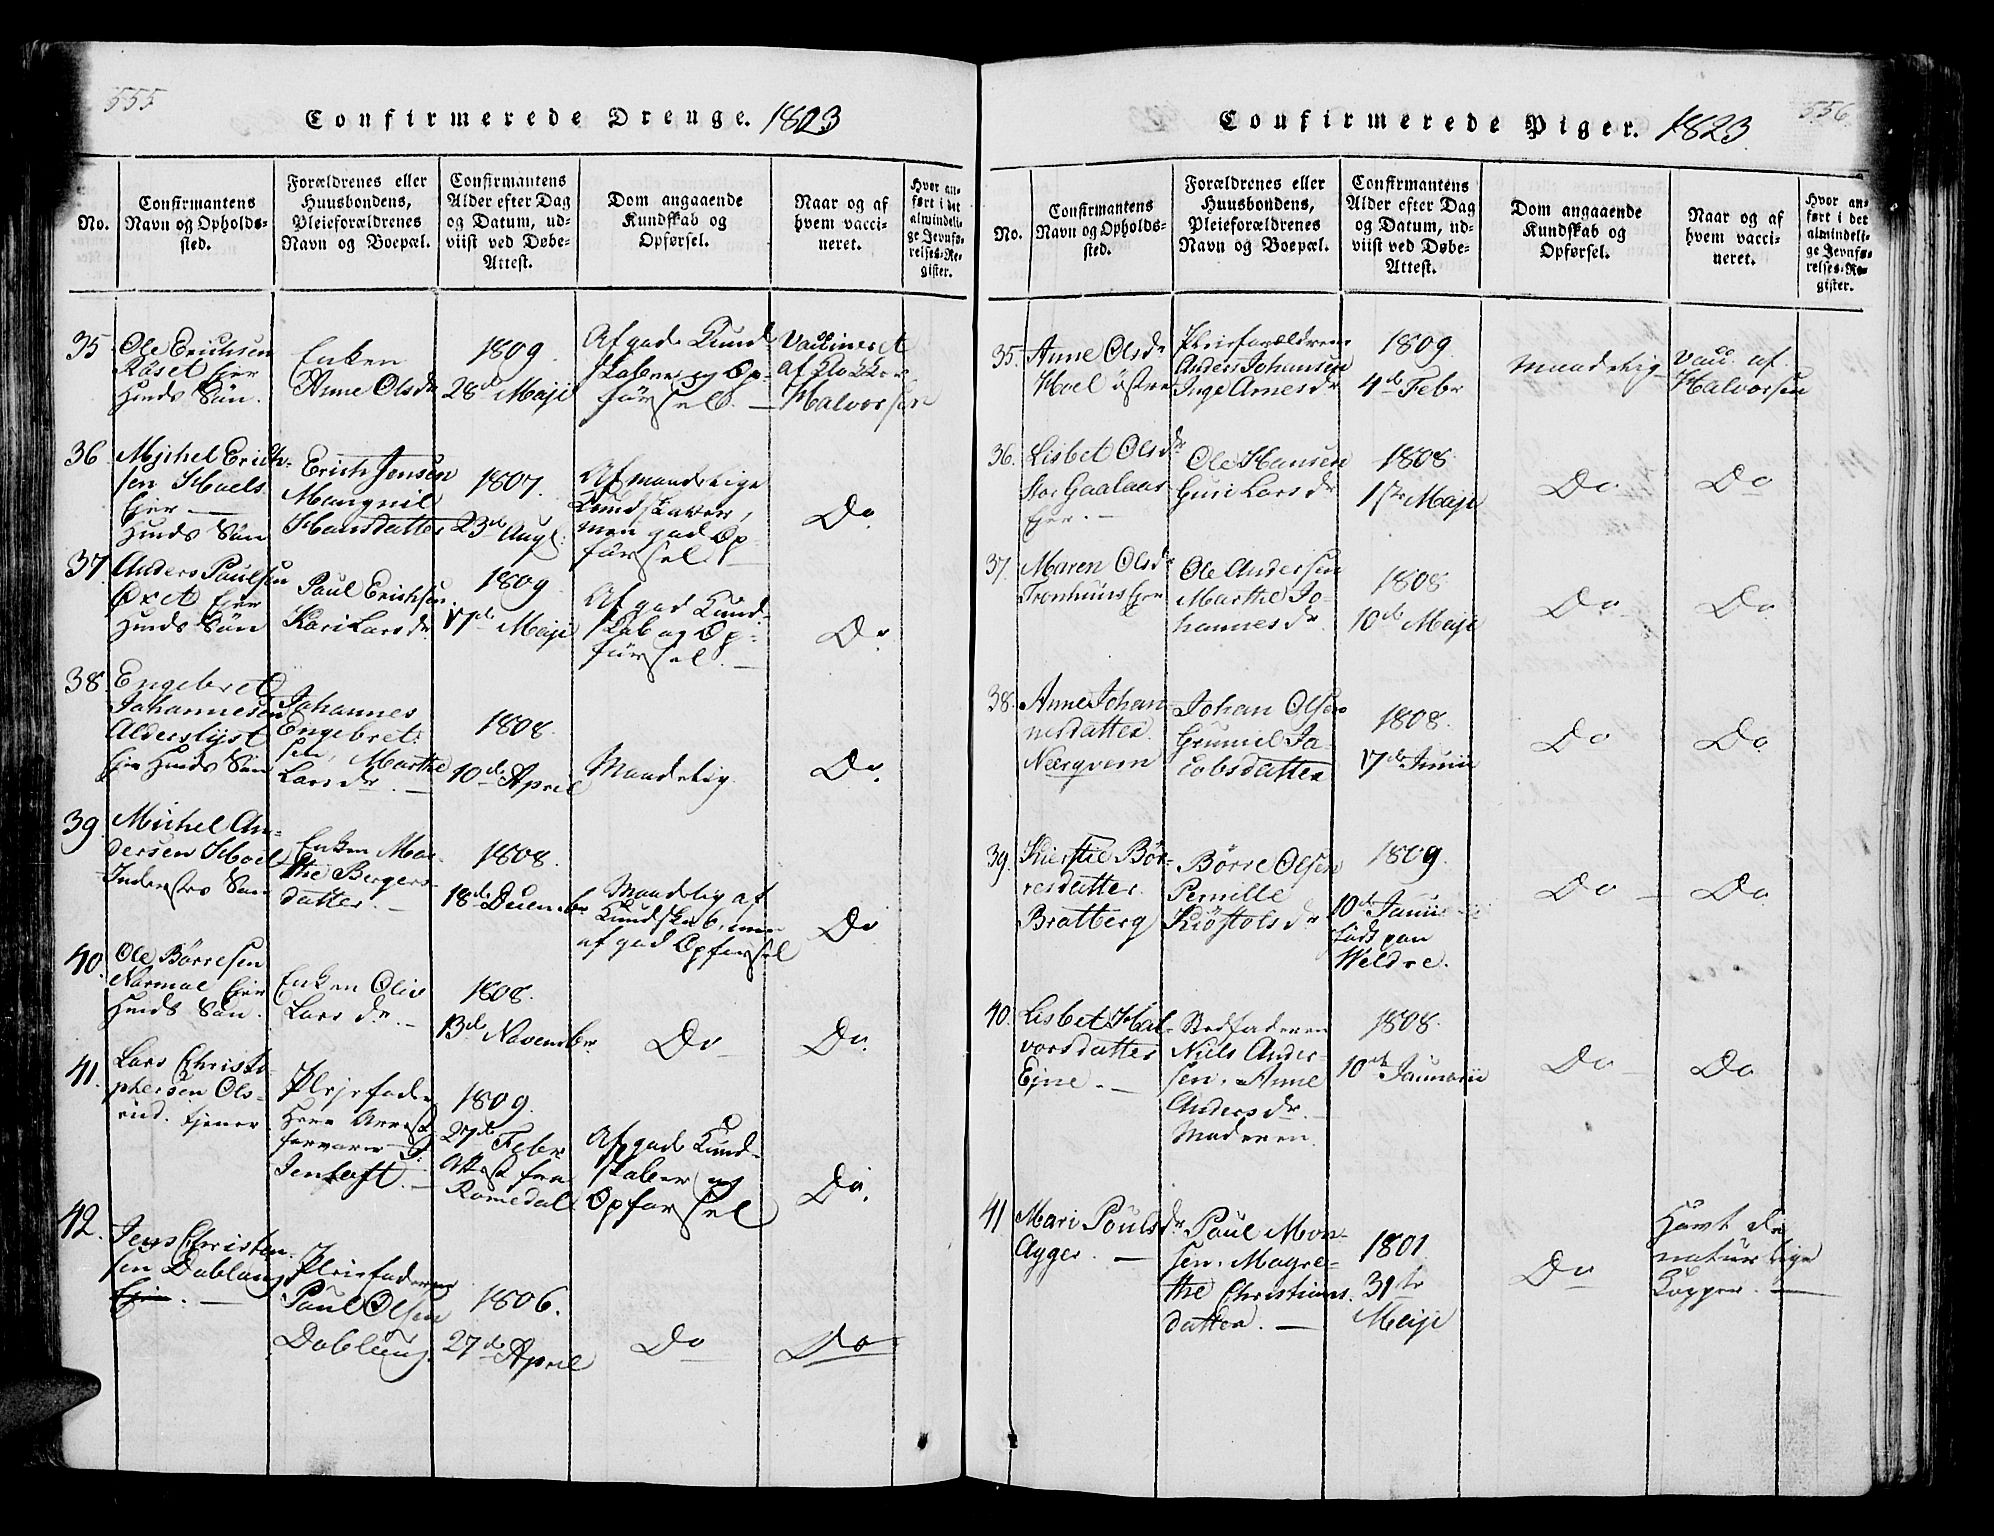 555
Confirmerede Drenge. 1823
No.
Confirmantens
Navn og Opholds-
sted.
Forældrenes eller
Huusbondens,
Pleieforældrenes
Navn og Boepæl.
Confirmantens
Alder efter Dag
og Datum, ud-
viist ved Døbe-
Attest.
Dom angaaende
Kundskab og
Opførsel.
Naar og af
hvem vacci-
neret.
Hvor an-
ført i det
almindeli-
ge Jevnfø-
relses-Re-
gister.
35
Ole Erichsen
Røset Eier
Huuds Søn.
Enken
Anne Olsdr
1809.
28de Maji
Af gode Kund
skaber og Op-
førsel. —
Vaccineret
af Klokker
Halvorsen
36
Mjchel Erich-
sen Hoels
Eier —
Huuds Søn
Erich Jensen
Marqnil
Hansdatter
1807.
23de Augs:
Af maadelige
Kundskaber,
men god Op-
førsel —
Do.
37.
Anders Paulsen
Eier
Huuds Søn
Paul Erichsen
Kari Larsdr.
1809
17de Maji
Af god Kund-
skab og Op-
førsel. —
Do.
38.
Engebret
Johannesen
Alderslyst
Eier Huuds Søn
Johannes
Engebret-
sen, Marthe
Larsdr. —
1808.
10de April
Maadelig.
Do.
39.
Michel An-
dersen Hoel
Søn
Enken Mar-
the Bergers-
datter. —
1808.
18de Decembr
Maadelig af
Kundskab, men
af god Opførsel
Do
40.
Ole Børresen
Normoe Eier
Huuds Søn.
Enken Olie
Larsdr. —
1808.
13de Novembr.
Do
Do.
41.
Lars Christo-
phersen Ols-
rud. tjener
Plejefader
Herr Arrest
forvarer
Jentoft. —
1809.
27de Febr
Attest fra
Romedal
Af gode Kund-
skaber og
Opførsel
Do.
42.
Jens Christen-
sen Doblaug
Eier. —
Pleiefaderen
Paul Olsen
Doblaug.
1806.
27de April
Do
Do
556.
Confirmerede Piger. 1823.
No.
Confirmantens
Navn og Opholds-
sted.
Forældrenes eller
Huusbondens,
Pleieforældrenes
Navn og Boepæl.
Confirmantens
Alder efter Dag
og Datum, ud-
viist ved Døbe-
Attest.
Dom angaaende
Kundskab og
Opførsel.
Naar og af
hvem vacci-
neret.
Hvor an-
ført i det
almindeli-
ge Jevnfø-
relses-Re-
gister.
35.
Anne Olsdr
Hoel østre
Pleieforældrene
Anders Johansen
Inge Arnesdr
1809.
4de Febr
Maadelig
Vacc. af
Halvorsen
36.
Lisbet Olsdr
Stor Gaalaas
Eier. —
Ole Hansen
Guri Larsdr
1808
1ste Maji
Do
Do
37.
Maren Olsdr
Tronhuus Eier
Ole Andersen
Marthe Jo-
hannesdr.
1808
10de Maji
Do
Do
38.
Anne Johan-
nesdatter.
Nærqvern
Johan Olsen
Gunnil Ja-
cobsdatter
1808.
17de Junii
Do
Do
39.
Kierstie Bør-
resdatter.
Bratberg
Børre Olsen
Pernille
Kiøstolsdr
1809.
10de Junii
født paa
Weldre.
Do
Do
40.
Lisbet Hal-
vorsdatter
Ejne. —
Stedfaderen
Niels Ander-
sen. Anne
Andersdr. —
Moderen.
1808.
10de Januarii
Do
Do
41
Mari Poulsdr
Agger. —
Paul Mon-
sen. Magre-
the Christians-
datter. —
1801
31te
Maji
Do
Havt de
naturlige
Kopper. —